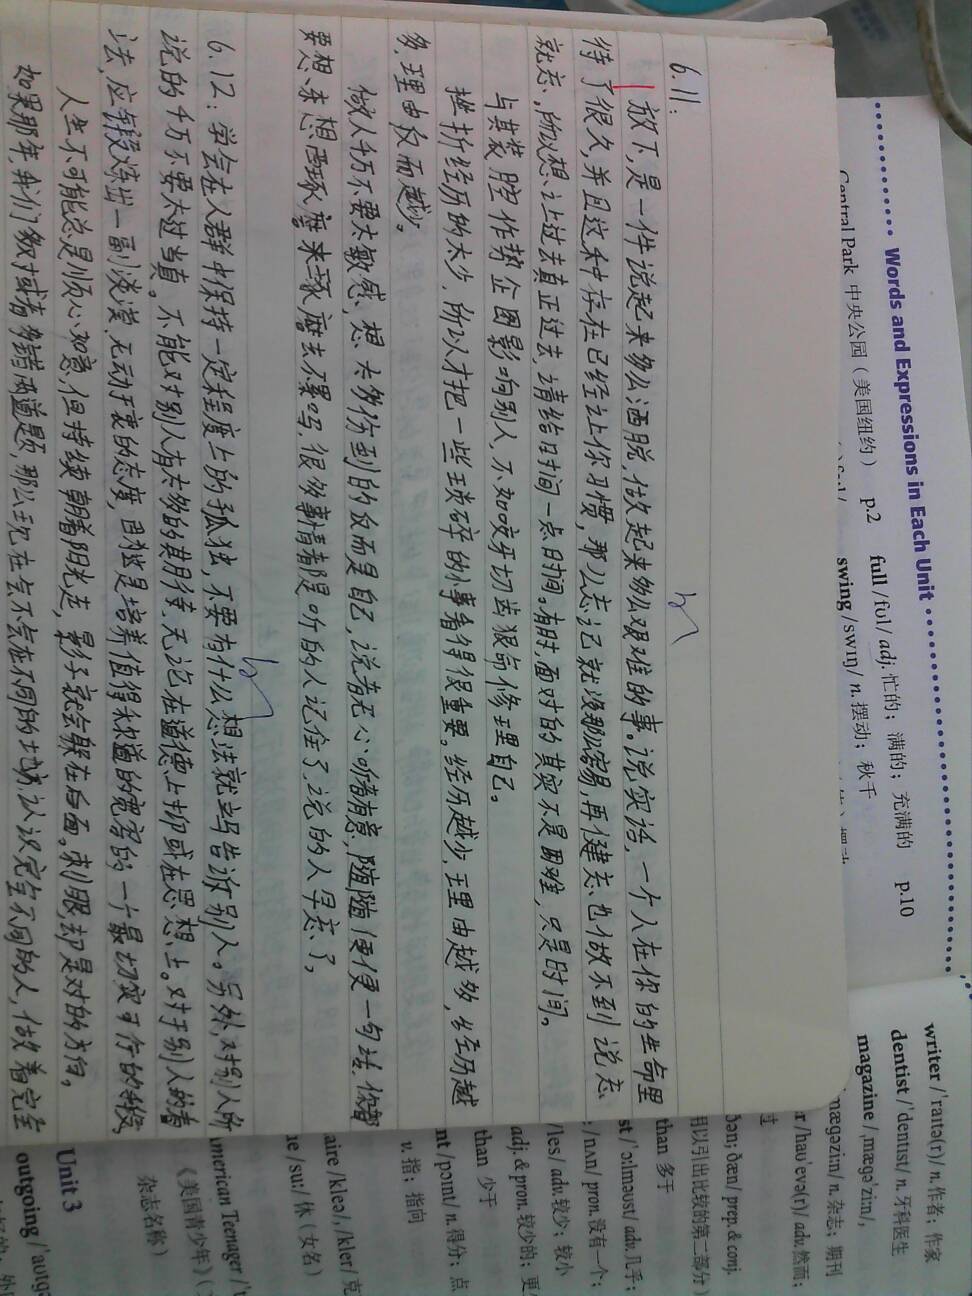 6.11:
放下,是一件说起来多么洒脱,做起来多么艰难的事。说实话,一个人在你的生命里
待了很久,并且这种存在已经让你习惯,那么忘记就没那么容易,再健忘也做不到说忘
就忘,所以想让过去真正过去,请给时间一点时间。有时,面对的其实不是困难,只是时间。
与其装腔作势企图影响别人,不如咬牙切齿狠命修理自己。
挫折经历的太少,所以才把一些琐碎的小事看得很重要。经历越少,理由越多,经历越
多,理由反而越少。
做人千万不要太敏感,想太多伤到的反而是自己,说者无心,听者有意,随随便便一句话,你都
要想来想去,琢磨来琢磨去不累吗,很多事情都是听的人记住了,说的人早忘了,
6.12:学会在人群中保持一定程度上的孤独,不要有什么想法就立马告诉别人。另外,对别人所
说的千万不要太过当真。不能对别人有太多的期待,无论在道德上抑或在思想上。对于别人的看
法,应锻炼出一副淡漠、无动于衷的态度,因为这是培养值得称道的宽容的一个最切实可行的手段,
人生不可能总是顺心如意,但持续朝着阳光走,影子就会躲在后面。刺眼,却是对的方向,
如果那年,我们多对或者多错两道题,那么现在会不会在不同的地方,认识完全不同的人,做着完全
Words and Expressions in Each Unit
Central Park 中央公园(美国纽约) p.2
full /fʊl/ adj.忙的;满的;充满的 p.10
swing /swɪŋ/ n.摆动;秋千
writer /ˈraɪtə(r)/ n.作者;作家
dentist /ˈdentɪst/ n.牙科医生
magazine /ˌmægəˈziːn/,
mægəziːn/ n.杂志;期刊
r /haʊˈevə(r)/ adv.然而;
过
ðən; ðæn/ prep.& conj.
用以引出比较的第二部分)
than 多于
st /ˈɔːlməʊst/ adv.几乎;
/nʌn/ pron.没有一个;
/les/ adv.较少;较小
adj.& pron.较少的;更
than 少于
nt /pɔɪnt/ n.得分;点
v.指;指向
aire /kleə/,/kler/克
ue /suː/休(女名)
merican Teenager
《美国青少年》(
杂志名称)
Unit 3
outgoing